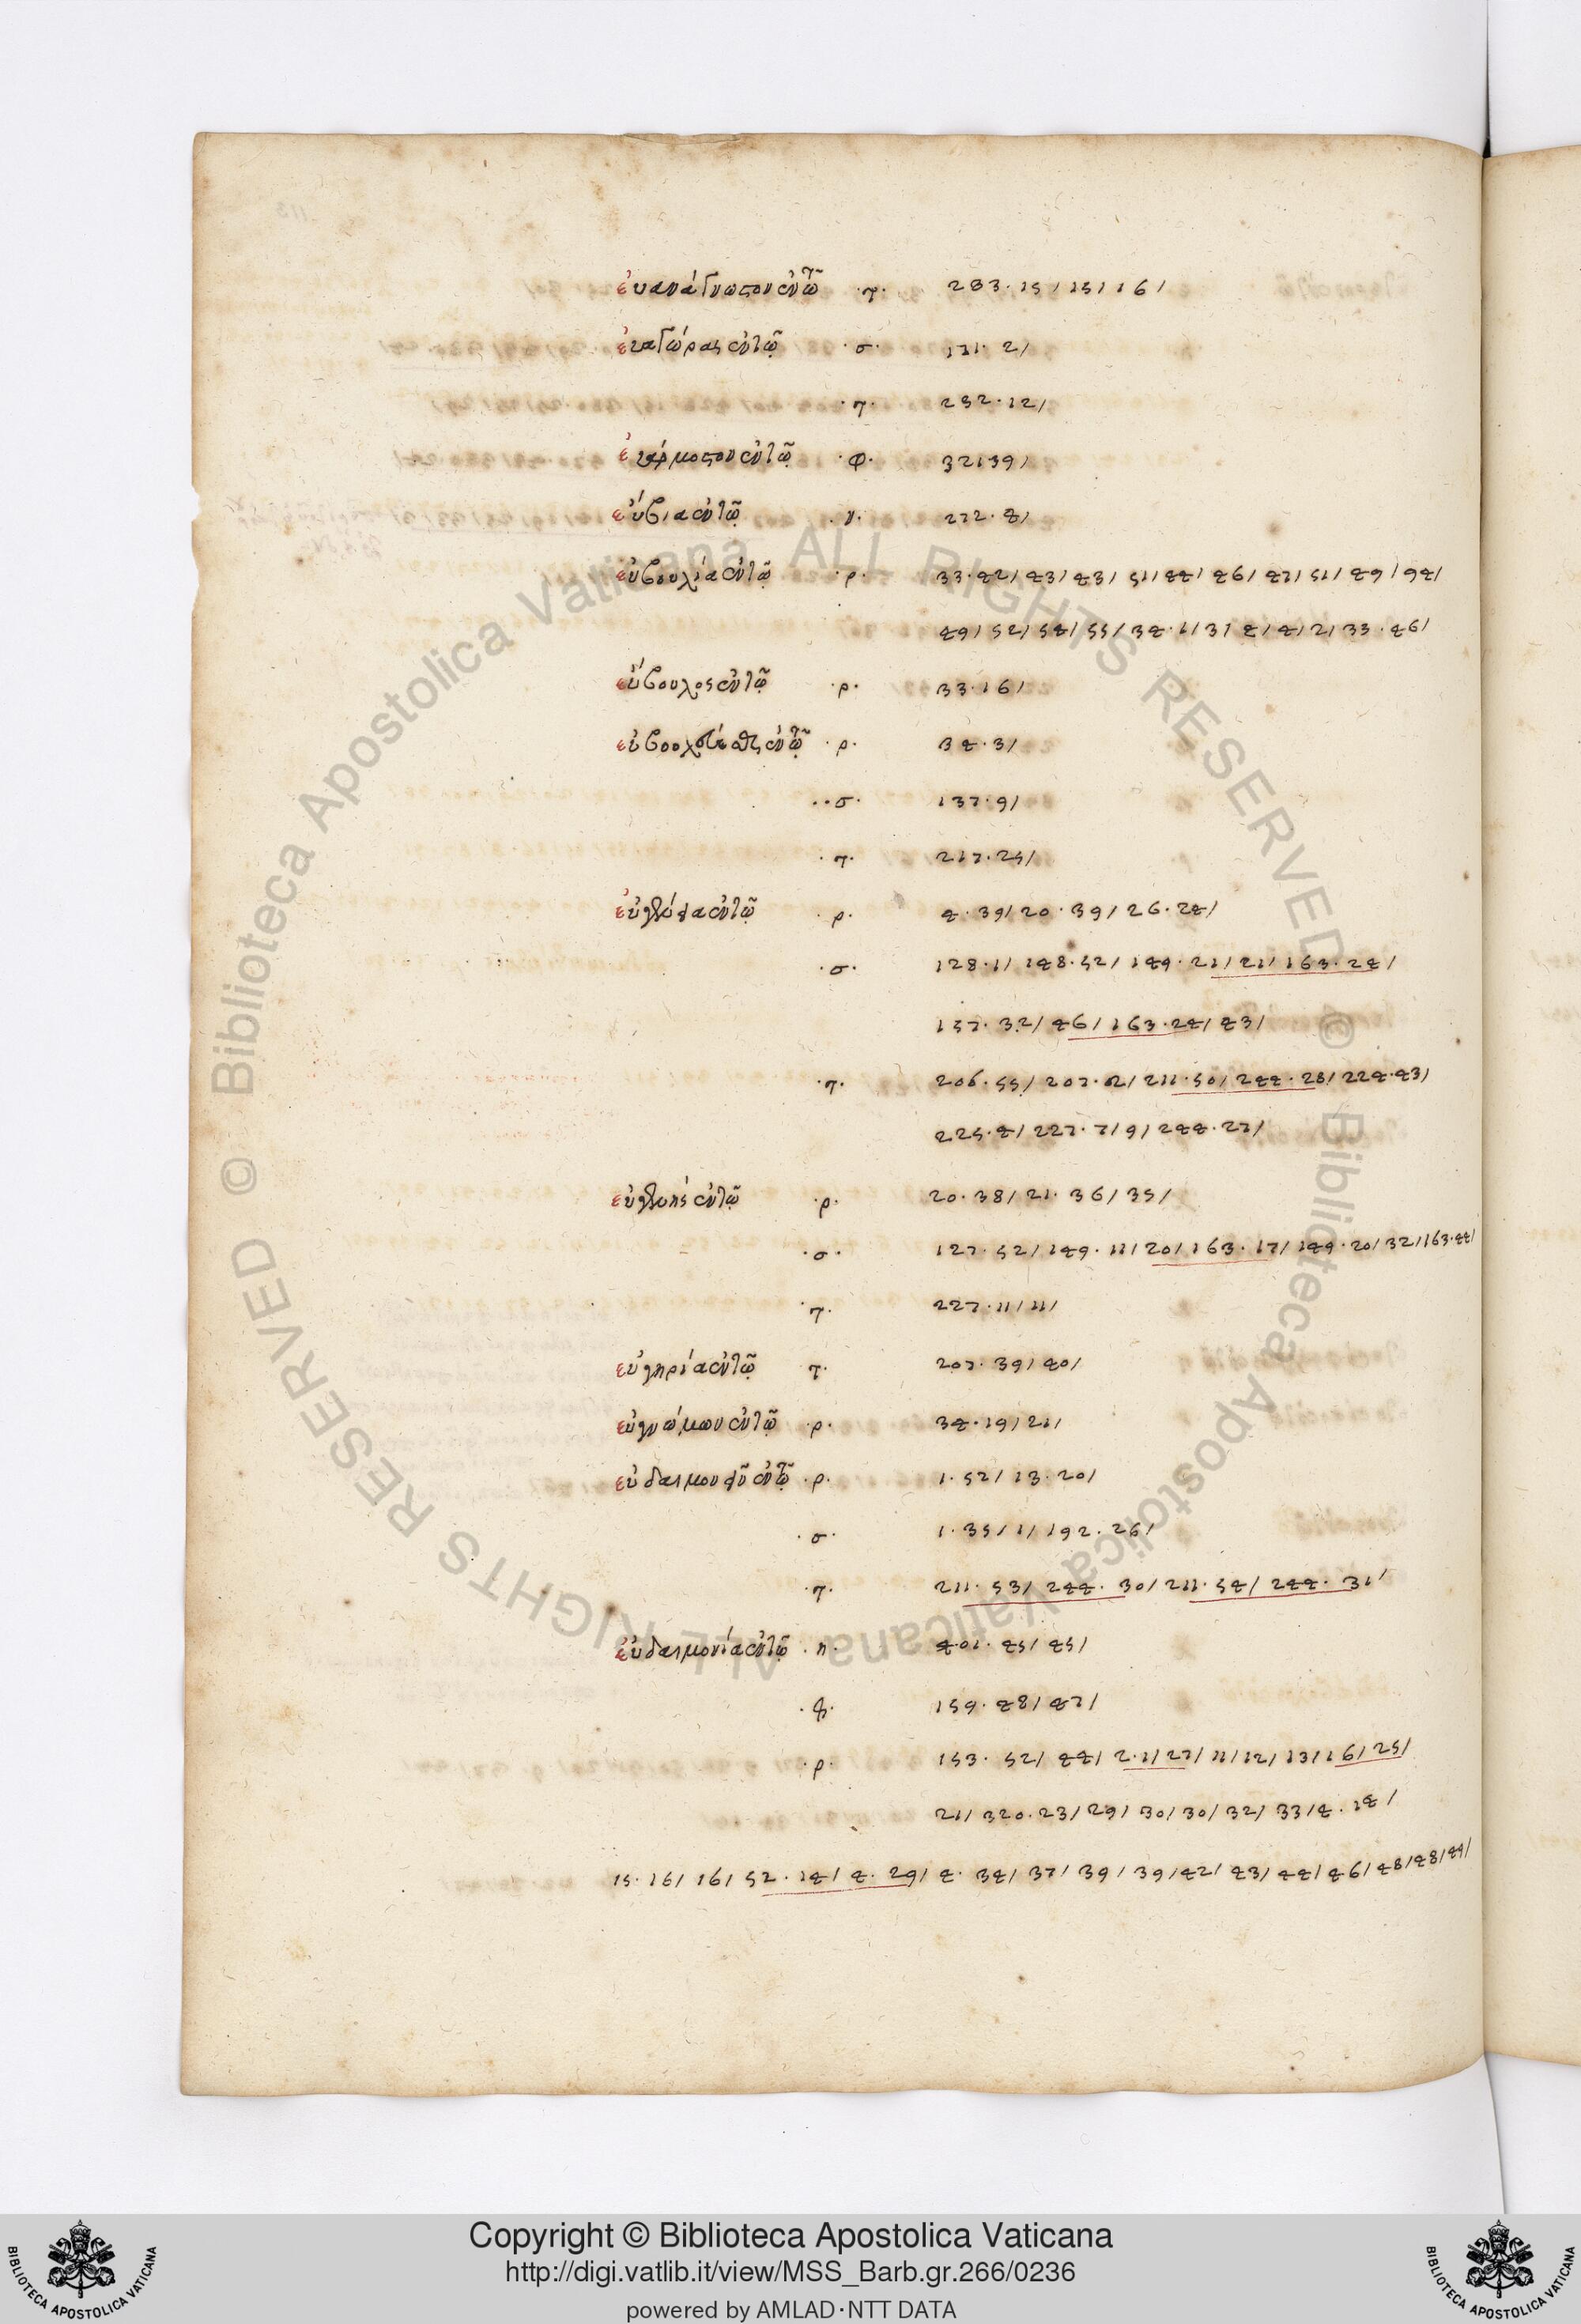 εὐανάγνωστον ἐν τῷ ·τ· 233·15/15/16/
·σ· 171·2/
·τ· 232·12/
εὐάρμοστον ἐν τῷ ·φ· 32139/
εὔβια ἐν τῷ ·ν· 272·4/
εὐβουλία ἐν τῷ ·ρ· 33·42/43/43/51/44/46/47/51/49/94/
49/52/54/55/34·1/3/4/4/2/33·46/
εὔβουλος ἐν τῷ ·ρ· 33·16/
ἐν τῷ ·ρ· 34·3/
··σ· 137·9/
·τ· 217·25/
εὐγένεια ἐν τῷ ·ρ· 4·39/20·39/26·24/
·σ· 128·1/148·52/149·21/21/163·24/
157·32/46/163·24/43/
·τ· 206·55/207·02/211·50/244·28/224·43/
225·4/227·7/9/244·27/
εὐγενής ἐν τῷ ·ρ· 20·38/21·36/35/
·σ· 127·52/149·11/20/163·17/149·20/32/163·44/
·τ· 227·11/11/
εὐγηρία ἐν τῷ τ· 207·39/40/
εὐγνώμων ἐν τῷ ·ρ· 34·19/21/
εὐδαιμονεῖν ἐν τῷ ·ρ· 1·52/13·20/
·σ· 1·35/1/192·26/
·τ· 211·53/244·30/211·54/244·31/
εὐδαιμονία ἐν τῷ ·η· 401·45/45/
159·48/47/
·ρ· 153·52/44/2·1/27/11/12/13/16/25/
21/320·23/29/30/30/32/33/4·14/
15·16/16/52·14/4·29/4·34/37/39/39/42/43/44/46/48/48/49/
Copyright © Biblioteca Apostolica Vaticana
http://digi.vatlib.it/view/MSS_Barb.gr.266/0236
powered by AMLAD·NTT DATA
BIBLIOTECA APOSTOLICA VATICANA
BIBLIOTECA APOSTOLICA VATICANA
© Biblioteca Apostolica Vaticana ALL RIGHTS RESERVED
© Biblioteca Apostolica Vaticana ALL RIGHTS RESERVED